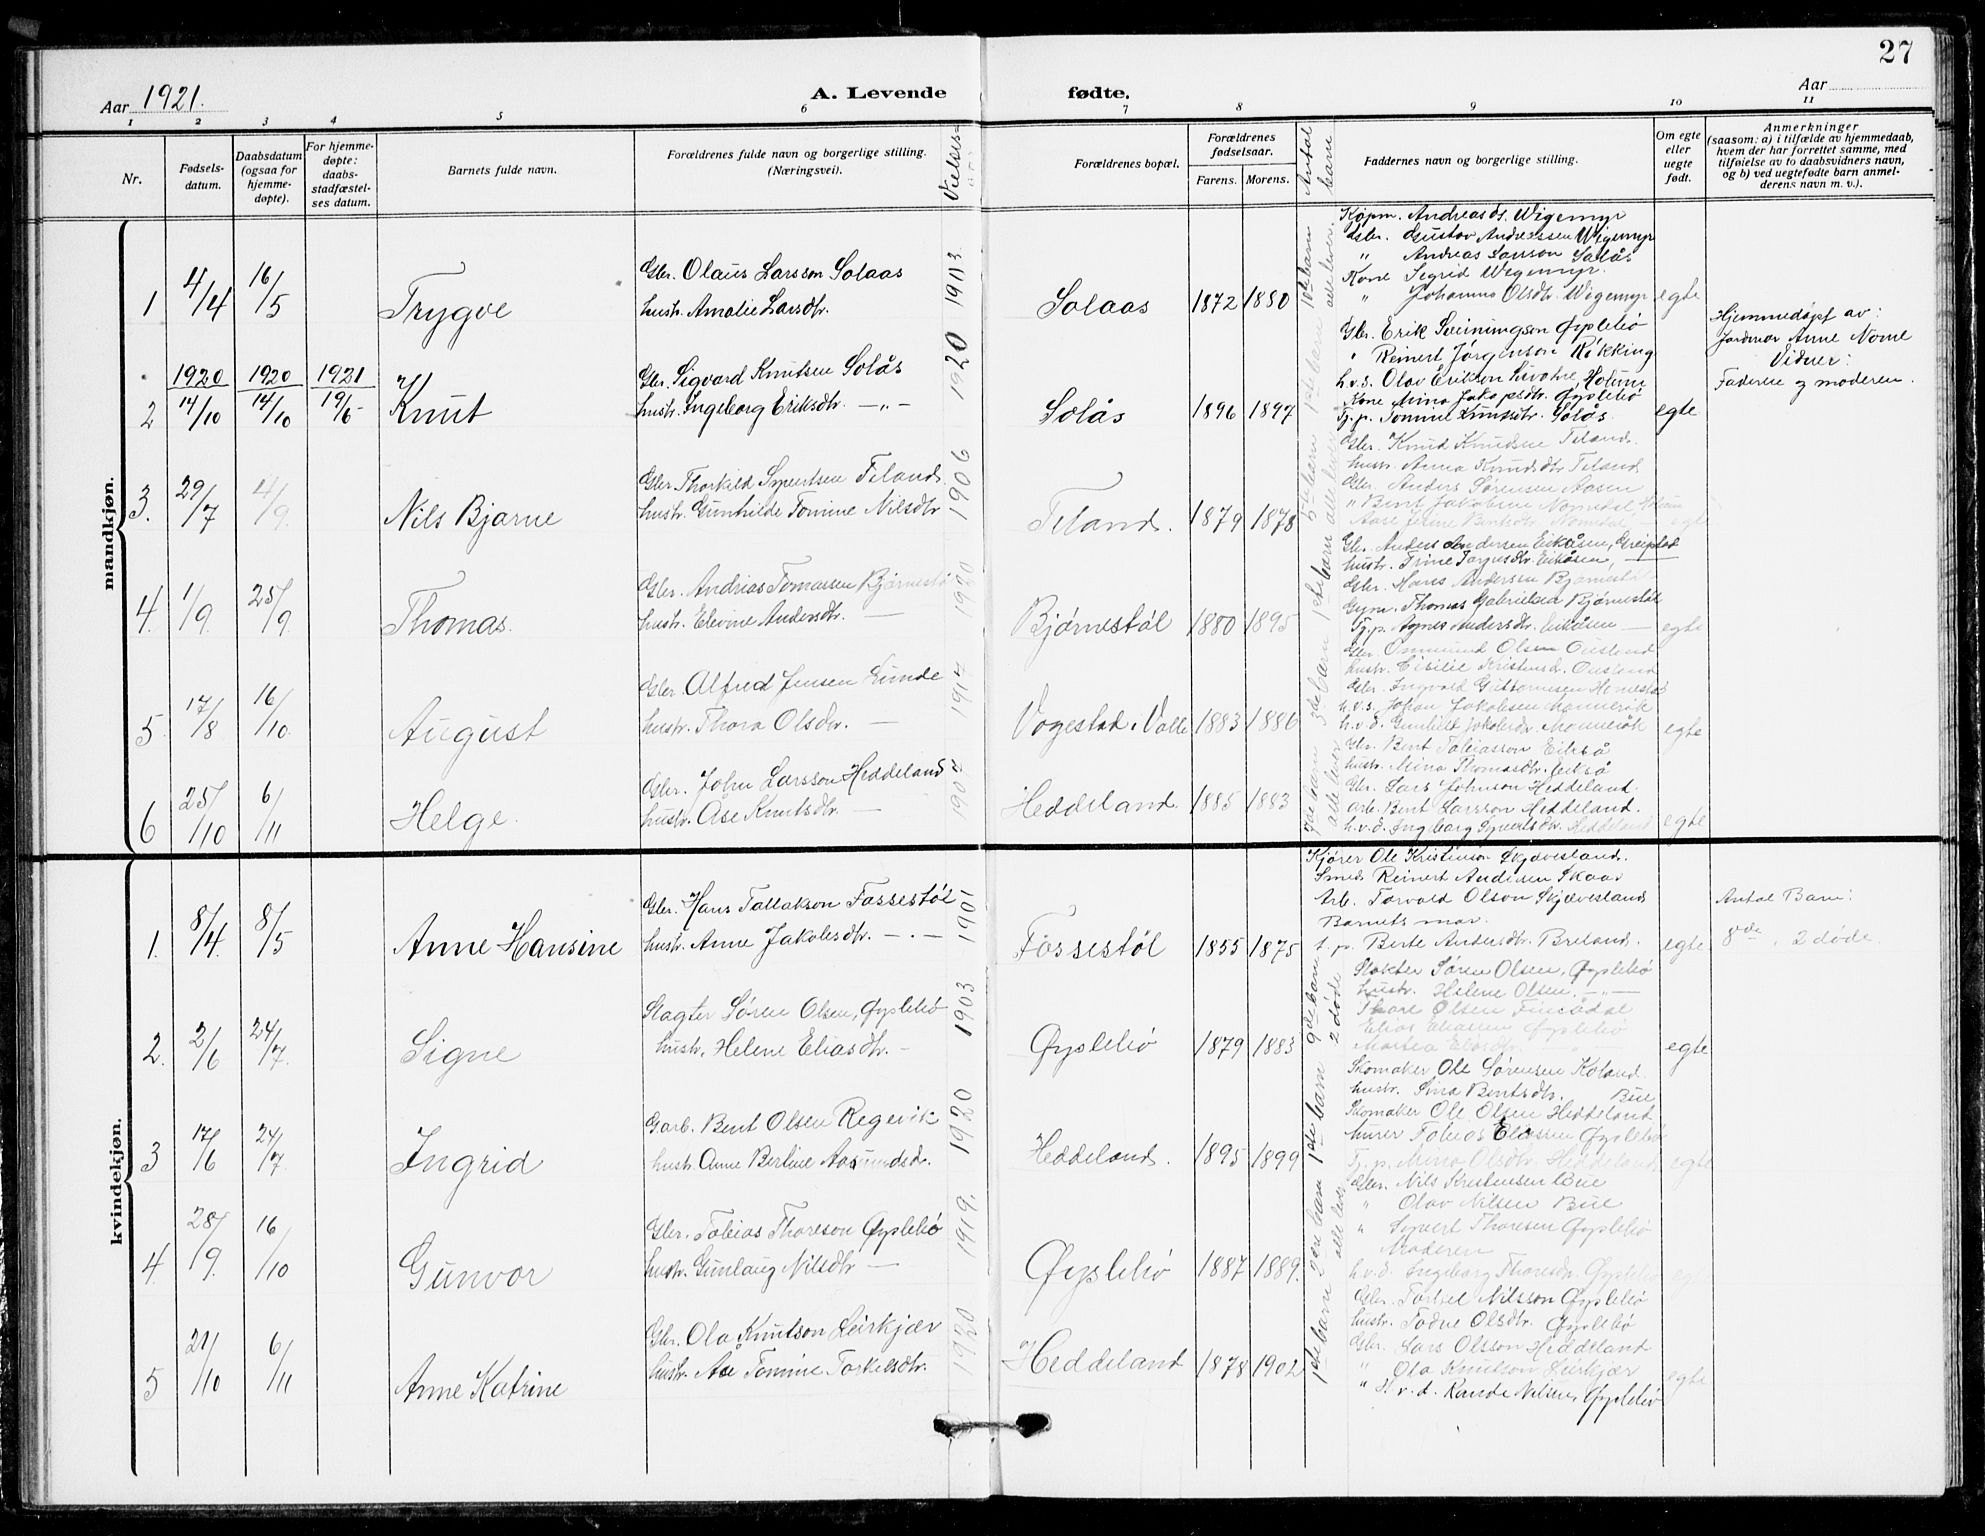 27
Aar 1921.
A. Levende fødte.
Aar
1 2 3 4 5 6 7 8 9 10 11
Nr.
Fødsels-
datum.
Daabsdatum
(ogsaa for
hjemme-
døpte).
For hjemme-
døpte:
daabs-
stadfæstel-
ses datum.
Barnets fulde navn.
Forældrenes fulde navn og borgerlige stilling.
(Næringsvei).
Vielses
Forældrenes bopæl.
Forældrenes
fødselsaar.
Farens. Morens.
Antal
barn
Faddernes navn og borgerlige stilling.
Om egte
eller
uegte
født.
Anmerkninger
(saasom: a) i tilfælde av hjemmedaab,
hvem der har forrettet samme, med
tilføielse av to daabsvidners navn,
og b) ved uegtefødte barn anmel-
derens navn m. v.).
mandkjøn.
1 4/4 16/5 Trygve
Gbr. Olaus Larsson Solaas
hustr. Amalie Larsdtr.
1903.
Solaas 1872 1880
10de barn
alle lever
Kjøpm. Andreas Wigemyr
Gbr. Gustav Andreassen Wigemyr
" Andreas Larsson Solås
Kone Sigrid Wigemyr.
" Johanne Olsdtr. Wigemyr
egte
2 1920 14/10 1920 14/10 1921 19/5 Knut
Gbr. Sigvard Knutsen Solås
hustr. Ingeborg Eriksdtr. —„—
1920
Solås 1896 1897
1ste barn
Gbr. Erik Øyslebø
" Reinert Jørgenson Røkking
h.v.s. Olav Erikson Holum
Kone Mina Jakobsdtr. Øyslebø
Tj.p. Tomine Knutsdtr. Solås.
egte
Hjemmedøpt av:
Jordmor Anne Nome
Vidner:
Faderen og moderen.
3. 29/7 4/9 Nils Bjarne
Gbr. Thorkild Syvertsen Tiland
hustr. Gunhilde Tomine Nilsdtr
1906
Tiland. 1879 1878
5te barn
alle lever
Gbr. Knud Knudsen Tiland.
hustr. Anna Knudsdtr Tiland
Gbr. Anders Sørensen Aasen
" Bent Jakobsen
egte
4. 1/9 25/9 Thomas.
Gbr. Andrias Tomassen Bjørnestøl
hustr. Elevine Andersdtr. —
1920
Bjørnestøl 1880 1895
1ste barn
Gbr. Anders Andersen Eikåsen, Greipstad
hustr. Trine Eikåsen, —
Gbr. Hans Andersen Bjørnestøl
Gym. Thomas Gabrielsen Bjørnestøl
Tj.p. Agnes Andersdtr. Eikåsen —
egte
5. 17/8 16/10 August
Gbr. Alfred Jensen Lunde
hustr. Thora Olsdtr. —
1914
Vogestad i Valle 1883 1886
3die barn
Gbr. Ommund Olsen Ousland
hustr. Cisilie Kristensd. Ousland
Gbr. Ingvald
h.v.s. Johan Jakobsen
h.v.d.
egte
6 25/10 6/11 Helge.
Gbr. John Larsson Heddeland
hustr. Åse Knutsdtr. —
Heddeland. 1885 1883
7de barn
alle lever
Gbr. Bent Tobiasson Eikså
hustr. Mina Thomasdtr. Eikså
Gbr. Lars Johnson Heddeland.
arb. Bent Larsson Heddeland.
h.v.d. Ingborg Syvertsdtr. Heddeland
egte
kvindekjøn.
1. 8/4 8/5 Anne Hansine
Gbr. Hans Tallakson Fossestøl
hustr. Anne Jakobsdtr. —.—
1901
Fossestøl 1855 1875
Kjører Ole Kristenson Skjævesland.
Smed Reinert Andersen Skaar
Arb. Torvald Olson Skjævesland
Barnets mor.
t. p. Berte Andersdtr. Breland.
egte
Antal Barn:
8de, 2 døde.
2. 2/6 24/7 Signe
Slagter Søren Olsen, Øyslebø
hustr. Helene Eliasdtr. —
1903
Øyslebø 1879 1883
9de barn
2 døde
Slakter Søren Olsen, Øyslebø
hustr. Helene Olsen. —„—
Thore Olsen Finsådal
Elias Eliassen Øyslebø
egte
3 17/6 24/7 Ingrid
Garb. Bent Olsen Regevik
hustr. Anne Berline Aasmundsd.
1920
Heddeland. 1895 1899
1ste barn
Skomaker Ole Sørensen Koland.
hustr. Sina Bentsdtr. Bue
Skomaker Ole Olsen Heddeland
murer Tobias Eliassen Øyslebø
Tj.p. Mina Olsdtr. Heddeland
egte
4. 28/9. 16/10 Gunvor
Gbr. Tobias Thoreson Øyslebø
hustr. Gunlaug Nilsdtr —
1919.
Øyslebø 1887 1889.
2det barn
alle lever
Gbr. Nils Kristensen Bue
" Olav Nilsen Bue
" Syvert Thoresen Øyslebø
Moderen
h.v.d. Ingeborg Thoresdtr. Øyslebø
egte
5 21/10 6/11 Anne Katrine
Gbr. Ola Knutson Leirkjær
hustr. Aase Tomine Torkelsdtr.
1920
Heddeland 1878 1902
1ste barn
Gbr. Torkel Nilsson Øyslebø
hustr. Todne Olsdtr. Øyslebø
Gbr. Lars Olsson Heddeland
" Ola Knutson Leirkjær
" H.v.d. Rande Nilsen, Øyslebø
egte